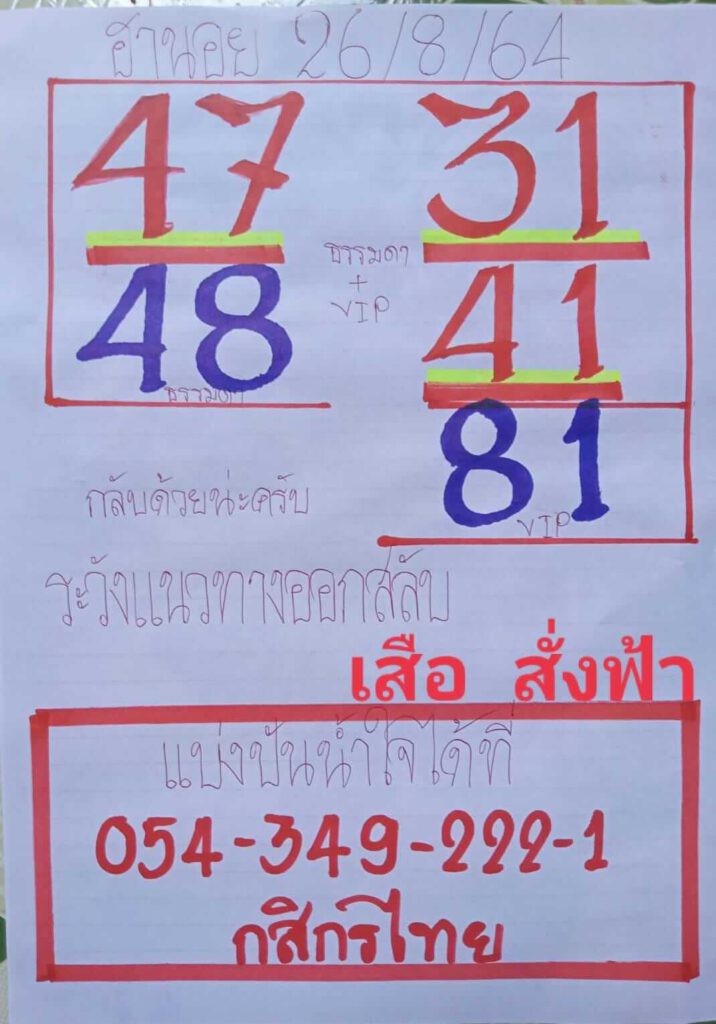 ฮานอย 26/8/64
47 31
ธรรมดา
+
VIP
48 41
ธรรมดา
81
VIP
กลับด้วยน่ะครับ
ระวังแนวทางออกสลับ
เสือ สั่งฟ้า
แบ่งปันน้ำใจได้ที่
054-349-222-1
กสิกรไทย